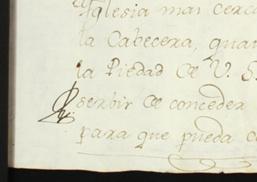 Iglesia mas cerc
la Cabecera, qua
la Piedad de V. S.
serbir de conceder
para que pueda